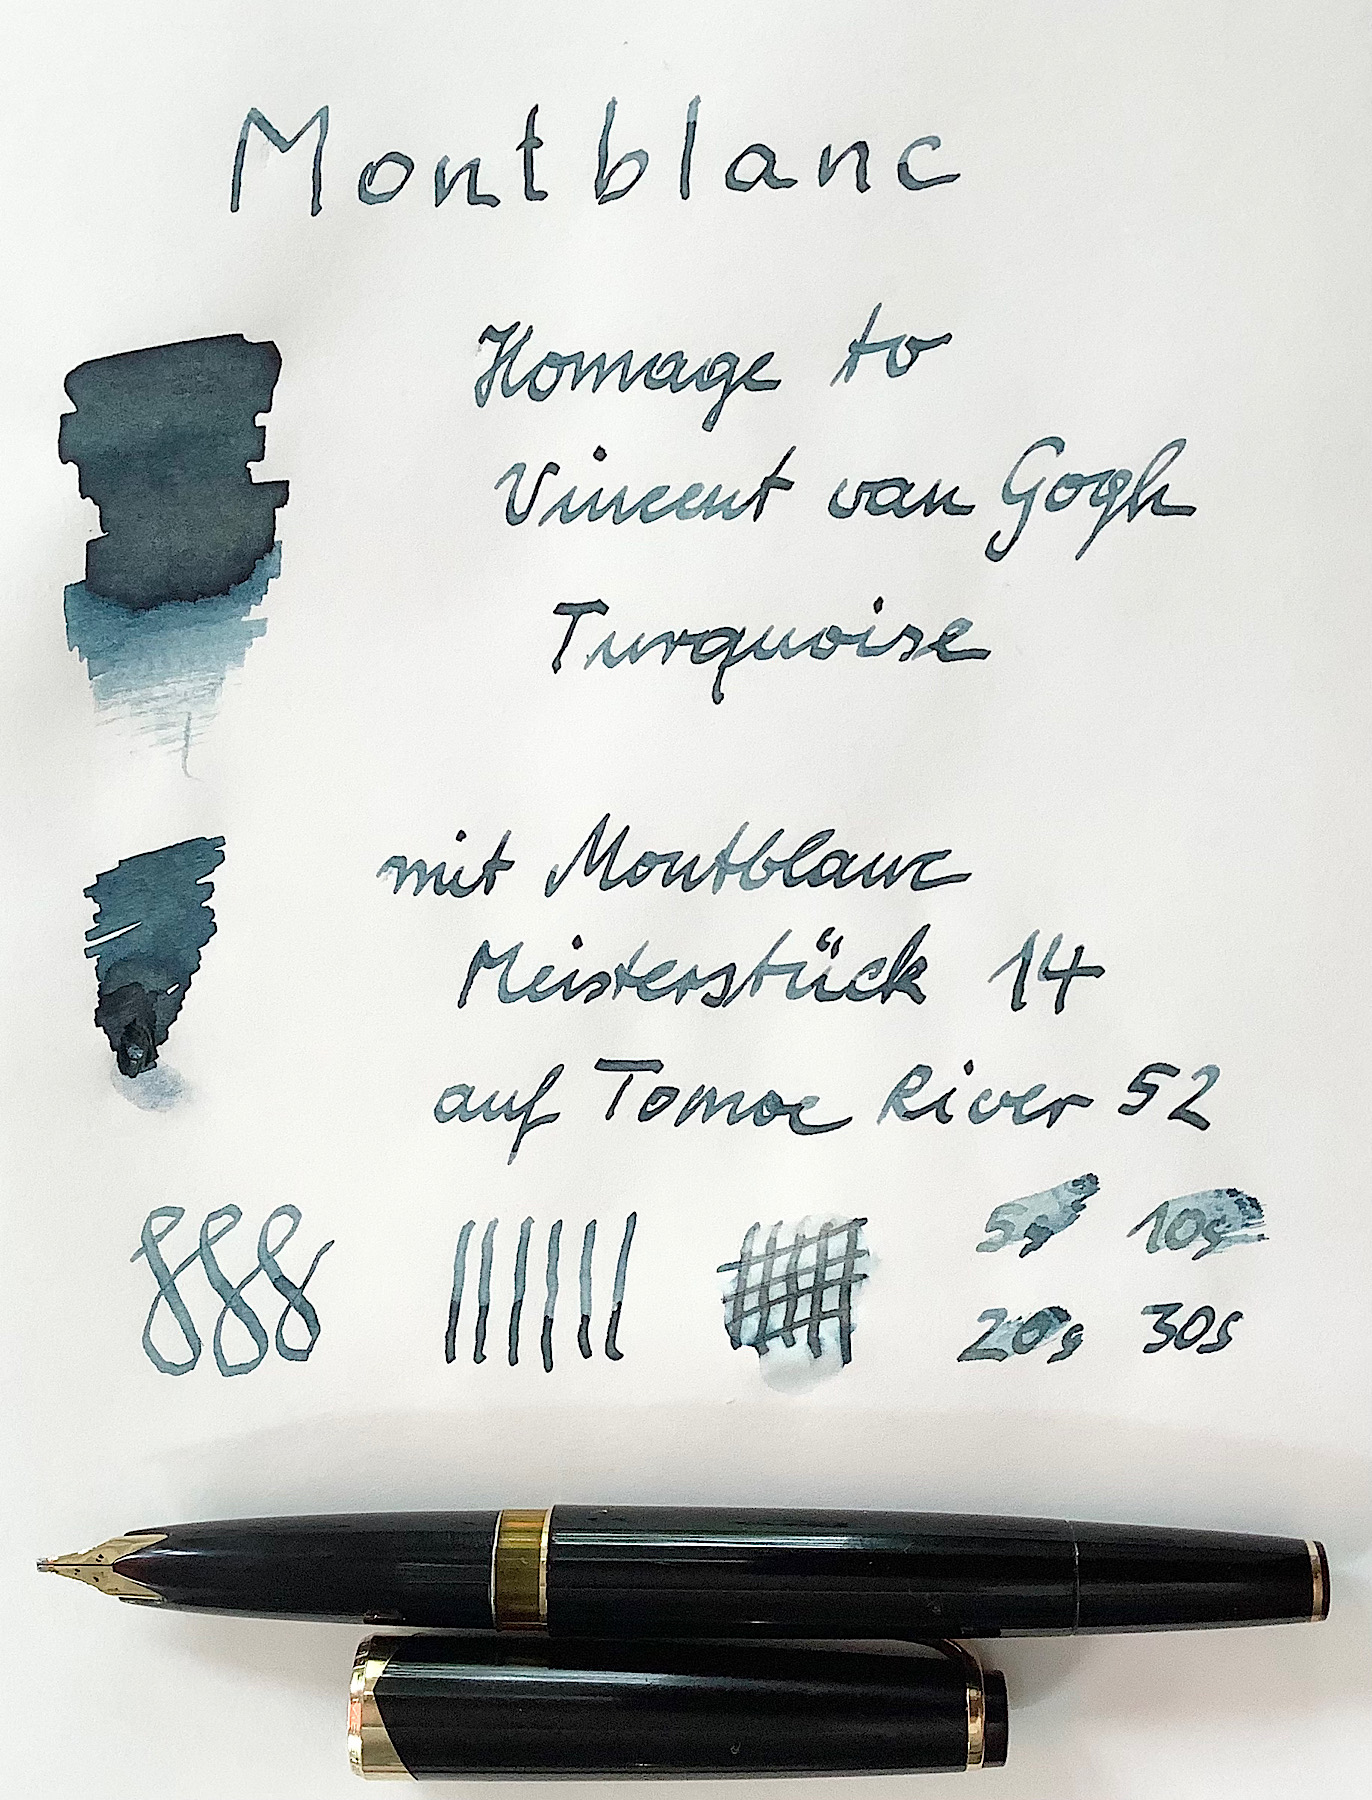 Montblanc
Homage to
Vincent van Gogh
Turquoise
mit Montblanc
Meisterstück 14
auf Tomoe River 52
5s 10s
20s 30s